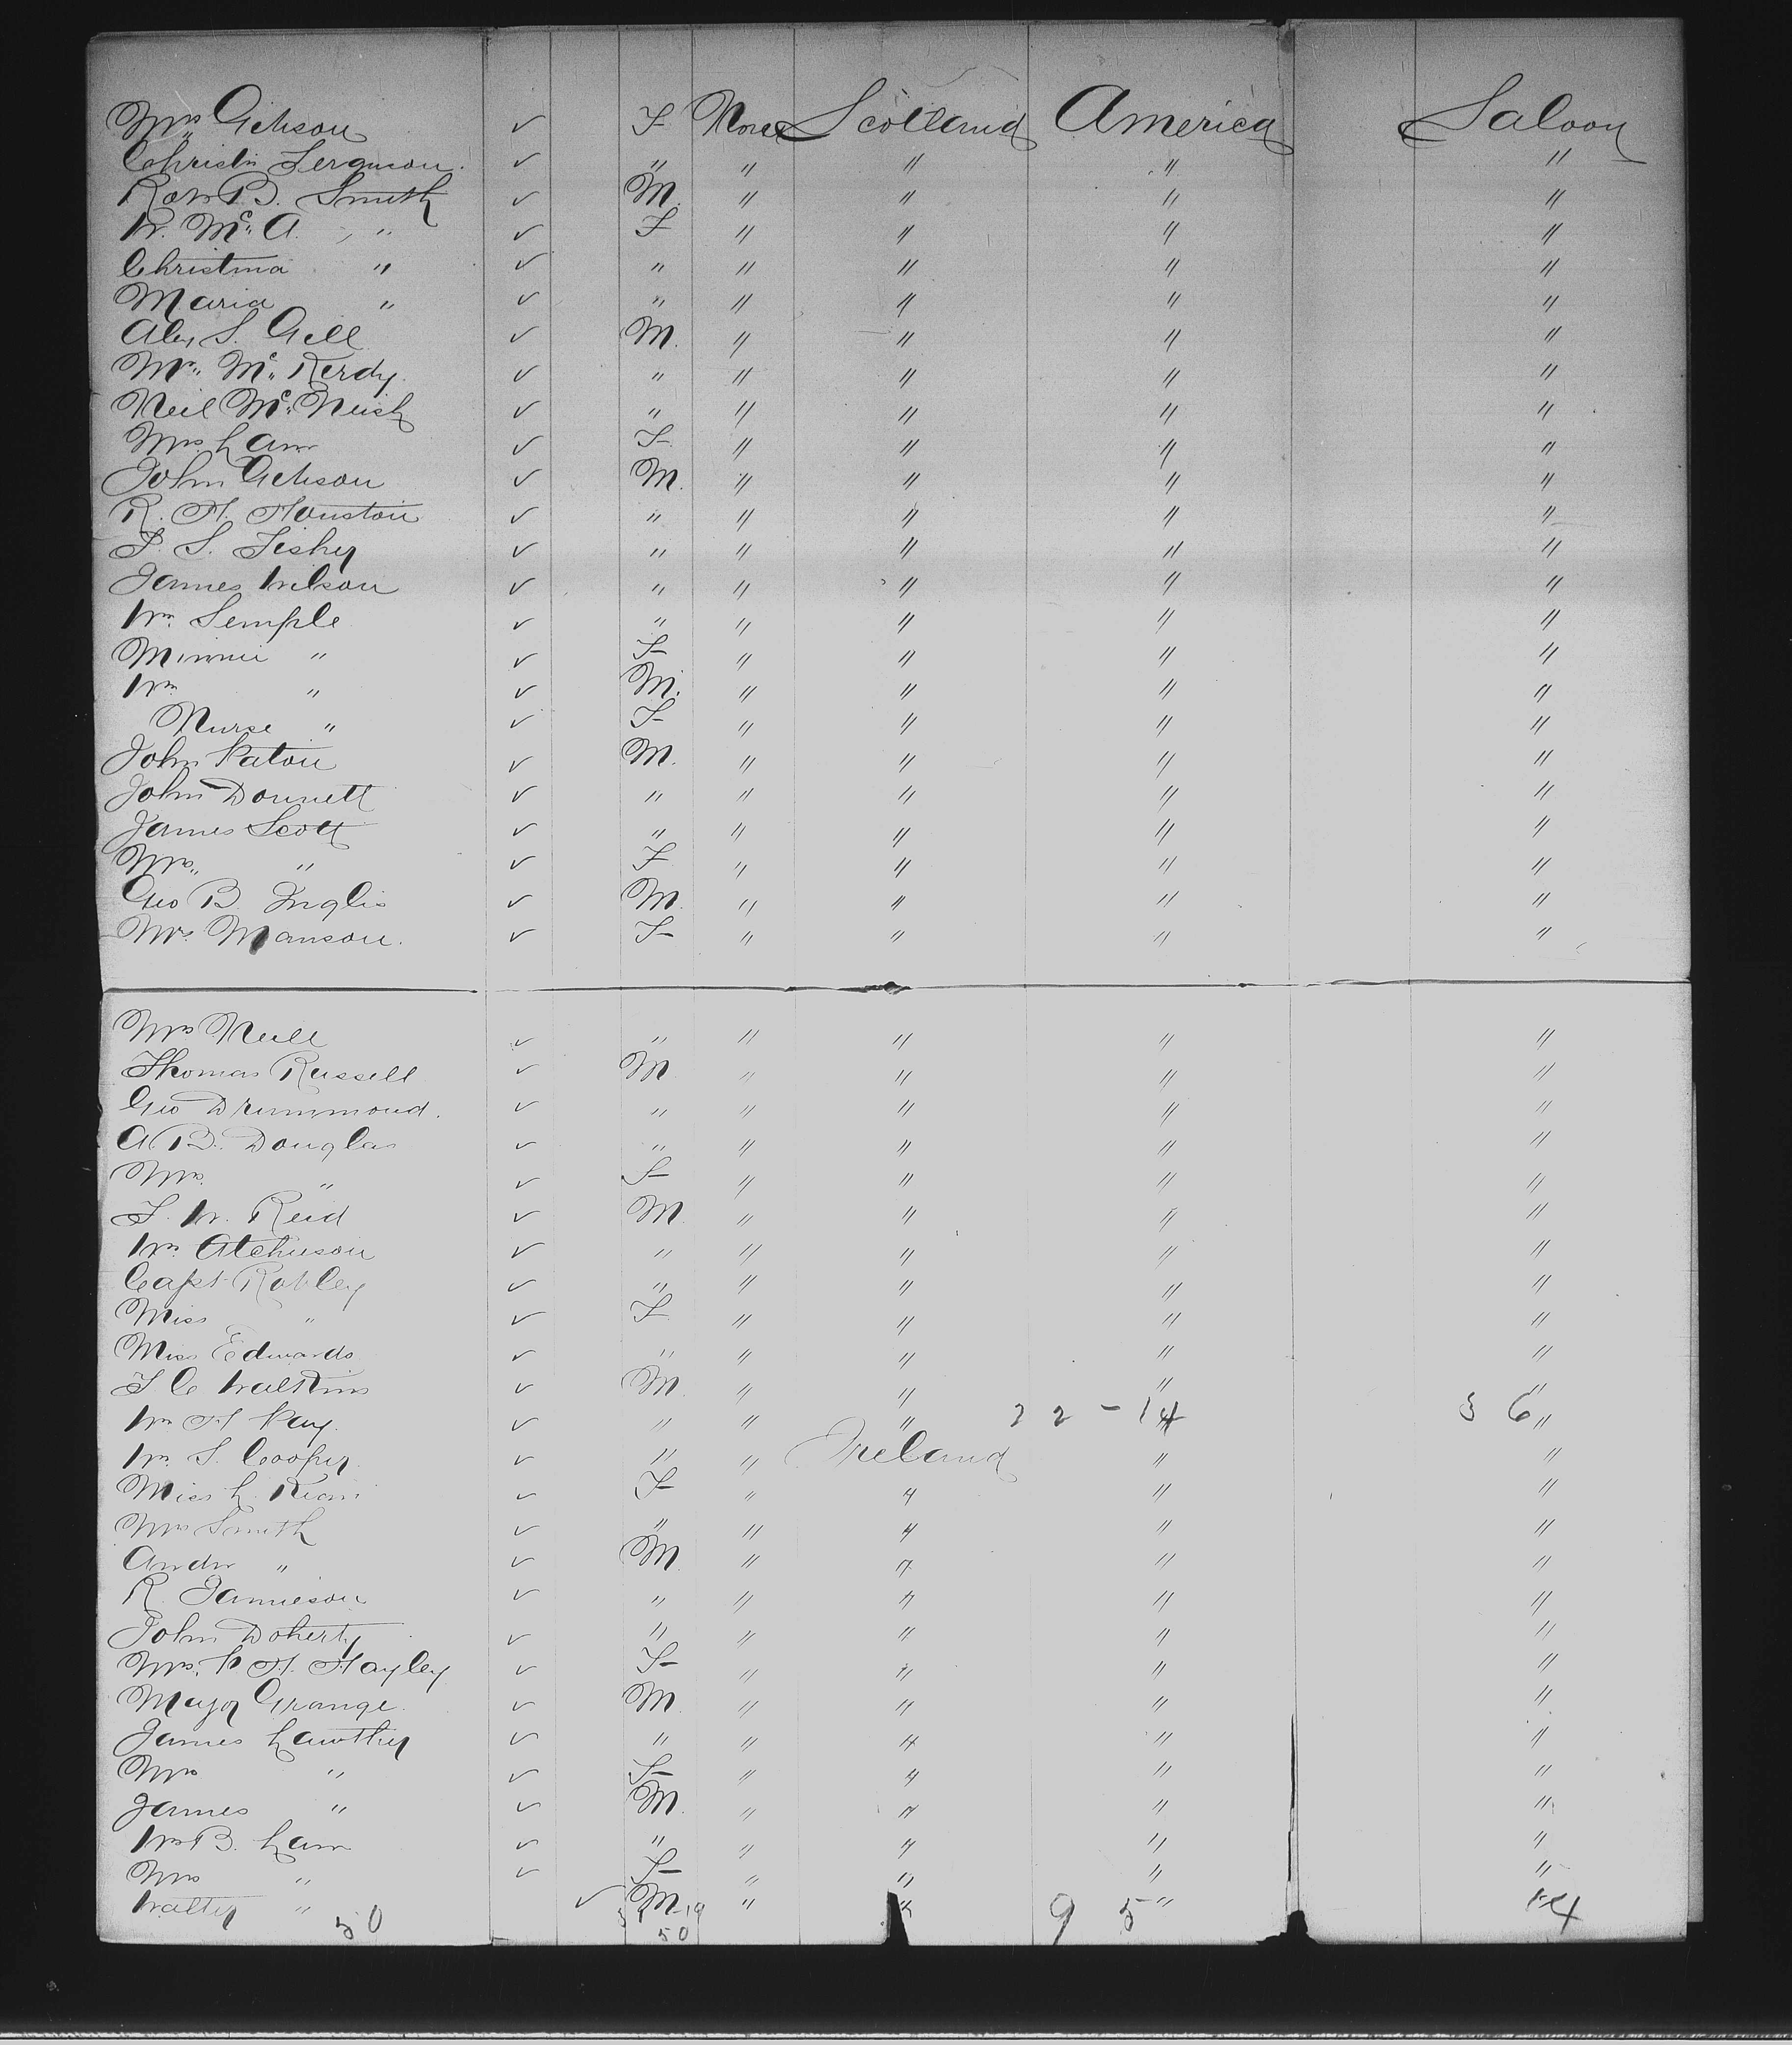 Mrs Gibson ✓ F None Scotland America Saloon
Christn Ferguson. ✓ " " " " "
Robt B. Smith ✓ M. " " " "
W. McA. " ✓ F " " " "
Christina " ✓ " " " " "
Maria " ✓ " " " " "
Alex S. Gill ✓ M. " " " "
Mr. Mc.Kerdy. ✓ " " " " "
Neil Mc.Neish ✓ " " " " "
Mrs Law ✓ F " " " "
John Gibson ✓ M. " " " "
R. H. Houston ✓ " " " " "
F. S. Fisher ✓ " " " " "
James Wilson ✓ " " " " "
Wm. Semple ✓ " " " " "
Minnie " ✓ F " " " "
Wm " ✓ M. " " " "
Nurse " ✓ F " " " "
John Paton ✓ M. " " " "
John Donnett ✓ " " " " "
James Scott ✓ " " " " "
Mrs. " ✓ F " " " "
Geo B. Inglis ✓ M. " " " "
Mrs. Manson. ✓ F " " " "
Mrs Neill ✓ " " " " "
Thomas Russell ✓ M " " " "
Geo Drummond. ✓ " " " " "
A. B. Douglas ✓ " " " " "
Mrs. " ✓ F " " " "
T. W. Reid ✓ M " " " "
Wm Atchison ✓ " " " " "
Capt Robley ✓ " " " " "
Miss " ✓ F " " " "
Miss Edwards ✓ " " " " "
T C Watkins ✓ M " " " "
Wm H Kay. ✓ " " " 22-14 " 36 "
Wm. S. Cooper ✓ " " Ireland " "
Miss L. ✓ F " " " "
Mrs Smith ✓ " " " " "
Andw " ✓ M " " " "
R. Jamieson ✓ " " " " "
John Doherty ✓ " " " " "
Mrs. P H. Hayley ✓ F " " " "
Major Grange. ✓ M " " " "
James Lawther ✓ " " " " "
Mrs " ✓ F " " " "
James " ✓ M " " " "
Wm B. Law ✓ " " " " "
Mrs " ✓ F " " " "
Walter " ✓ M " " 9 5 " 14
50 50